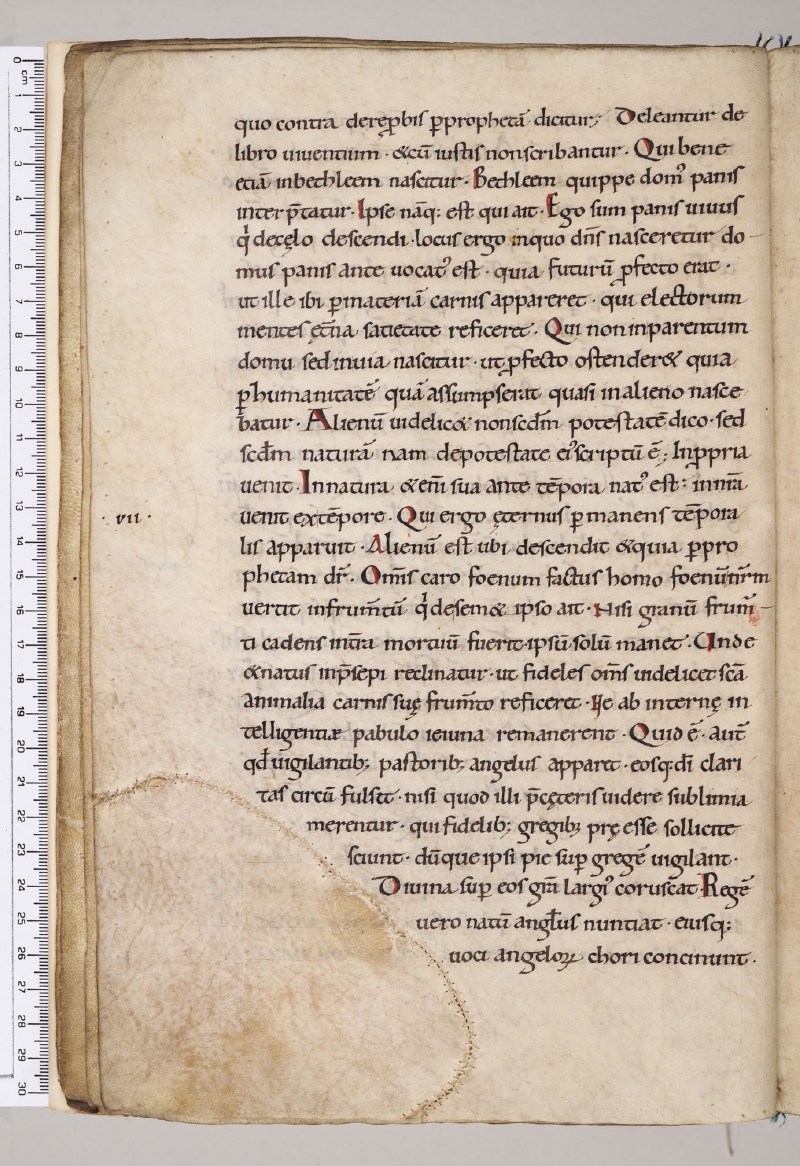 quo contra derep̱bis ꝑprophetā dicitur; Deleantur de
libro uiuentium · &cū iustis nonscribantur · Qui bene
etiā inbethleem nascitur · Bethleem quippe dom᷒ panis
interp̄tatur · Ipse nāq; est qui ait · Ego sum panis uiuus
q̇ decęlo descendi · locus ergo inquo dn̄s nasceretur do-
mus panis ante uocat᷒ est · quia futurū ꝓfecto erat ·
ut ille ibi ꝑmateriā carnis appareret · qui electorum
mentes ęt̄na satietate reficeret · Qui non inparentum
domu sed inuia nascitur · ut ꝓfecto ostender& quia
ꝑhumanitatē quā assumpserat quasi in alieno nasce
batur · Alienū uidelic& nonscdm̄ potestatē dico · sed
scdm̄ naturā nam depotestate ei᷒ scriptū ē; Inꝓpria
uenit · Innatura &eni᷒ sua ante tēpora nat᷒ est · in nr̄a
· vii · uenit extēpore · Qui ergo ęternus ꝑmanens tēpora
lis apparuit · Alienū est ubi descendit &quia ꝑpro
phetam dr̄ · Om̄is caro foenum factus homo foenū nr̄m
uertit infrum̄tū q̇ desem& ipso ait · Nisi granū frum̄-
ti cadens int̄ra mortuū fuerit · ipsū solū manet · Unde
&natus inp̄sepi reclinatur · ut fideles om̄s uidelicet scā
animalia carnis suę frum̄to reficeret · Ne ab internę in
telligentiæ pabulo ieiuna remanerent · Quid ē · aut̄
qd̄ uigilantib; pastorib; angelus apparet · eosq; dī clari
tas circū fulset · nisi quod illi p̄cęteris uidere sublimia
merentur · qui fidelib; gregib; pręesse sollicite
sciunt · dūque ipsi pie suꝑ gregē uigilant ·
Diuina suꝑ eos gr̄a largi᷒ coruscat · Regē
uero natū angl̄us nuntiat · eiusq;
uoci angeloꝝ chori concinunt ·